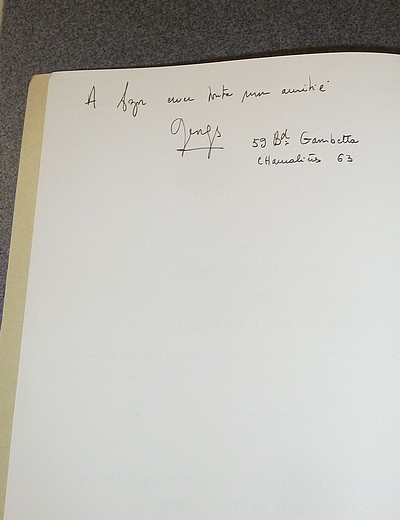 A avec toute mon amitié
59 Bd Gambetta
CHamalières 63